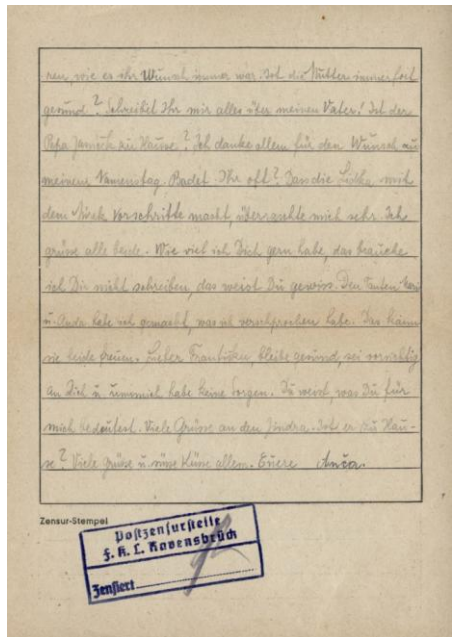 ren, wie es ihr Wunsch immer war. Ist die Mutter immer fort
gesund? Schreibet Ihr mir alles über meinen Vater! Ist der
Papa Janeček zu Hause? Ich danke allem für den Wunsch zu
meinem Namenstag. Badet Ihr oft? Das die Lidka mit
dem Mirek Vorschritte macht, überraschte mich sehr. Ich
grüsse alle beide. Wie viel ich Dich gern habe, das brauche
ich Dir nicht schreiben, das weist Du gewiss. Den Tanten
u. Anda habe ich gemacht, was ich versprochen habe. Das kann
sie beide freuen. Lieber Frantíčku, bleibe gesund, sei vorsichtig
an Dich u. um mich habe keine Sorgen. Du weist, was Du für
mich bedeutest. Viele Grüsse an den Jindra. Ist er zu Hau-
se? Viele Grüsse u. süsse Küsse allem. Euere Anča.
Zensur-Stempel
Postzensurstelle
F. K. L. Ravensbrück
Zensiert